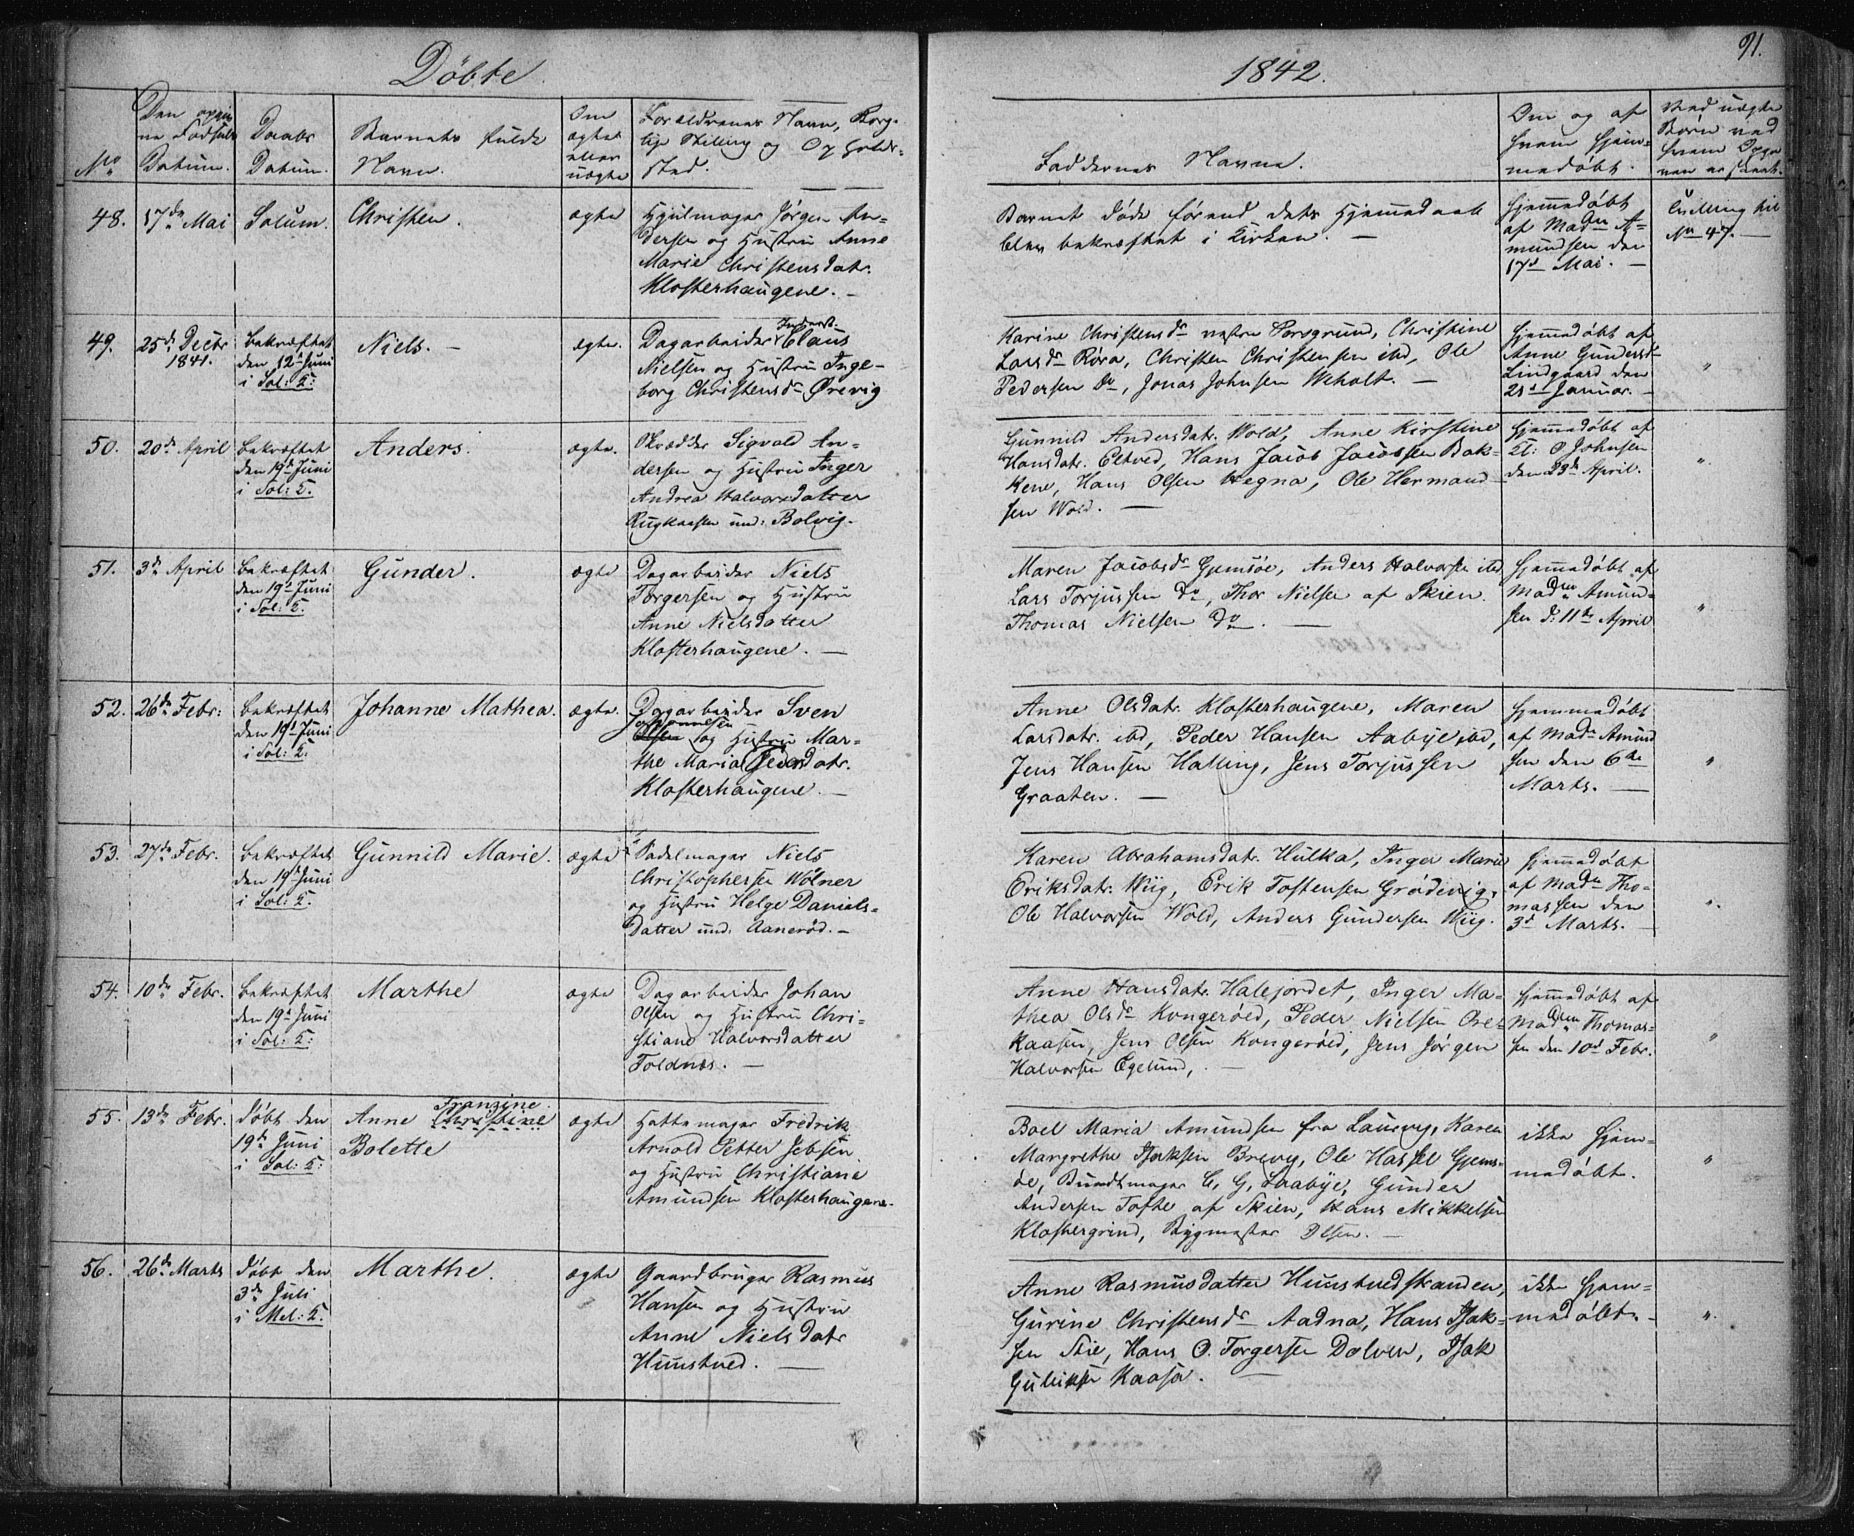 Døbte.
1842.
91.
No
Datum.
Daabs
Datum.
Barnets fulde
Navn.
Om
ægte
eller
uægte
Forældrenes Navn, Borg-
lige Stilling og Opholds-
sted.
Faddernes Navne.
Om og af
hvem hjem-
medøbt.
48.
17de Mai
Solum.
Christen.
ægte
Hjulmager Jørgen An-
dersen og Hustru Anne
Marie Christensdatr.
Klosterhaugene. —
Barnet døde førend dets Hjemmedaab
blev bekræftet i Kirken. —
hjemmedøbt
af Madm A-
mundsen den
17d Mai. —
Tvilling til
No 47. —
49.
25de Decbr
1841.
bekræftet
den 12d Juni
i Sol: K:
Niels. —
ægte.
Inderst.
Dagarbeider Claus
Nielsen og Hustru Inge-
borg Christensdr Ørevig
Karine Christensdr vestre Porsgrund, Christine
Larsdr Røra, Christen Christensen ibd, Ole
Pedersen Do, Jonas Johnsen Weholt. —
hjemmedøbt af
Anne Gundersd
Lindgaard den
21d Januar. —
"
50.
20de April
bekræftet
den 19d Juni
i Sol: K.
Anders.
ægte.
Skrædder Sigvald An-
dersen og Hustru Inger
Andrea Halvorsdatter
Rugkaasen und: Bolvig.
Gunnild Andersdatr. Wold, Anne Kirstine
Hansdatr. Eltved, Hans Jacob Jacobsen Bak-
kene, Hans Olsen Hegna, Ole Hermand-
sen Wold. —
hjemmedøbt af
O. Johnsen
den 23de April.
"
51.
3de April
bekræftet
den 19d Juni
i Sol: K.
Gunder.
ægte
Dagarbeider Niels
Torgersen og Hustru
Anne Nielsdatter
Klosterhaugene. —
Maren Jacobsdr Gjemsøe, Anders Halvorsen ibd
Lars Torjussen Do, Thor Nielsen af Skien.
Thomas Nielsen Do. —
hjemmedøbt af
Madm Amund-
sen d: 11te April
"
52.
26de Febr:
bekræftet
den 19d Juni
i Sol: K.
Johanne Mathea.
ægte.
Dagarbeider Sven
Olsen og Hustru Mar-
the Maria Pedersdatr.
Klosterhaugene. —
Anne Olsdatr. Klosterhaugene, Maren
Larsdatr. ibd, Peder Hansen Aabye ibd,
Jens Hansen Halling, Jens Torjussen
Graaten. —
hjemmedøbt
af Madm Amund
sen den 6te
Marts. —
"
53.
27de Febr.
bekræftet
den 19d Juni
i Sol: K.
Gunnild Marie.
ægte
Sadelmager Niels
Christophersen Wølner
og Hustru Helge Daniels-
datter und: Aanerød. —
Karen Abrahamsdatr. Hulka, Inger Marie
Eriksdatr. Wiig, Erik Toftensen Grødevig,
Ole Halvorsen Wold, Anders Gundersen Wiig.
hjemmedøbt
af Madm Tho-
massen den
3d Marts. —
"
54.
10de Febr.
bekræftet
den 19d Juni
i Sol: K.
Marthe
ægte
Dagarbeider Johan
Olsen og Hustru Chri-
stiane Halvorsdatter
Foldnæs. —
Anne Hansdatr. Halejordet, Inger Ma-
thea Olsdr Kongerøed, Peder Nielsen Ore-
kaasen, Jens Olsen Kongerøed, Jens Jørgen
Halvorsen Egelund, —
hjemmedøbt af
Madm Thomas-
sen den 10d Febr.
"
55.
13de Febr.
døbt den
19de Juni
i Sol: K:
Franzine
Anne Christine
Bolette
ægte
Hattemager Fredrik
Arnold Petter Jebsen
og Hustru Christiane
Amundsen Klosterhaugene.
Boel Maria Amundsen fra Laurvig, Karen
Margrethe Isaksen Brevig, Ole Hassel Gjems-
øe, Bundtmager C. G. Aabye, Gunder
Andersen Tofte af Skien, Hans Mikkelsen
Klostergrind, Bygmester Olsen. —
ikke hjem-
medøbt.
"
56.
26de Marts
døbt den
3de Juli
i Mel: K.
Marthe.
ægte
Gaardbruger Rasmus
Hansen og Hustru
Anne Nielsdatr
Humstved. —
Anne Rasmusdatter Humstvedstranden,
Gurine Christensdr Aadna, Hans Isak-
sen Stie, Hans O. Torgersen Dolven, Isak
Guliksen Kaasa.
ikke hjem-
medøbt.
"